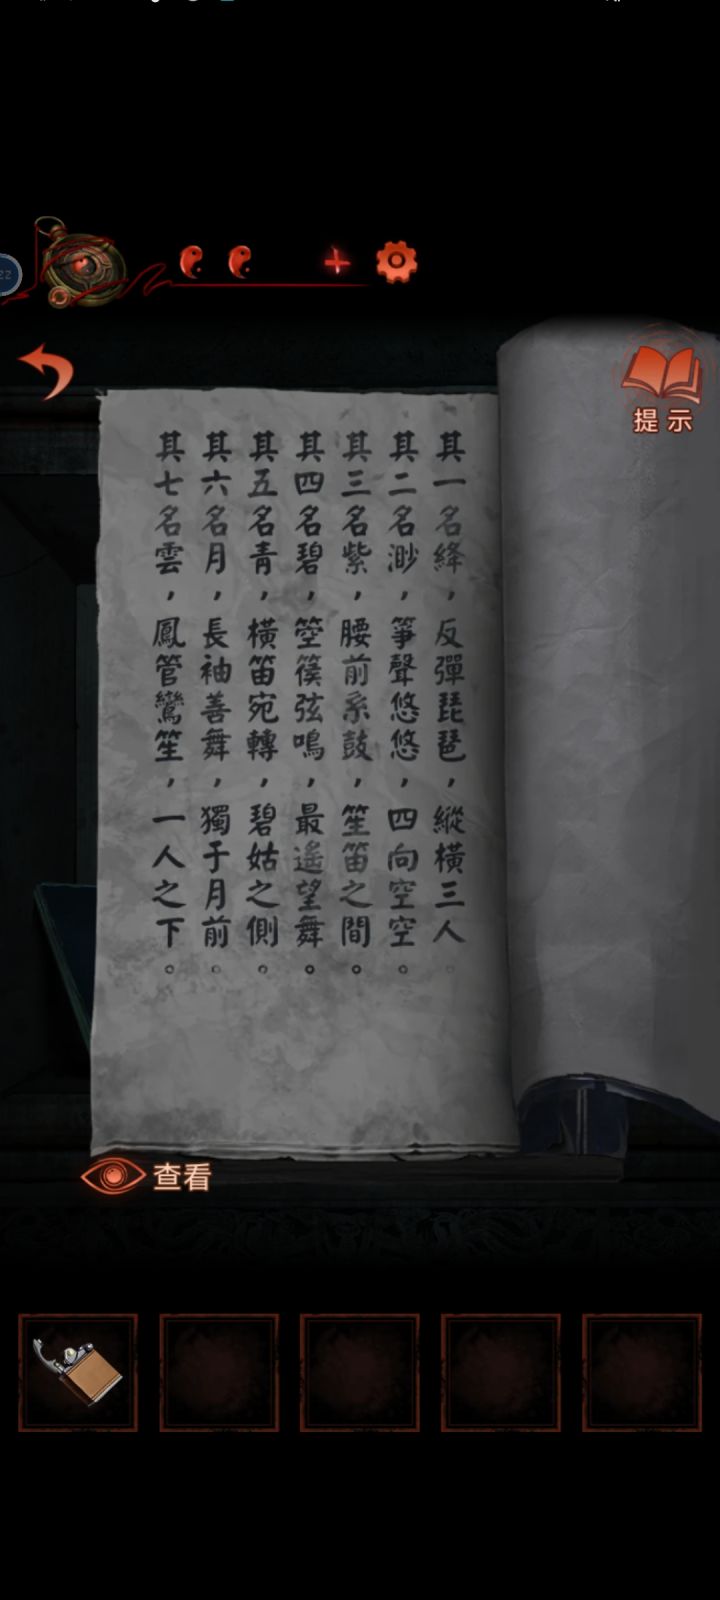 提示
其一名絳，反彈琵琶，縱橫三人。
其二名渺，箏聲悠悠，四向空空。
其三名紫，腰前系鼓，笙笛之間。
其四名碧，箜篌弦鳴，最遙望舞。
其五名青，橫笛宛轉，碧姑之側。
其六名月，長袖善舞，獨于月前。
其七名雲，鳳管鸞笙，一人之下。
查看